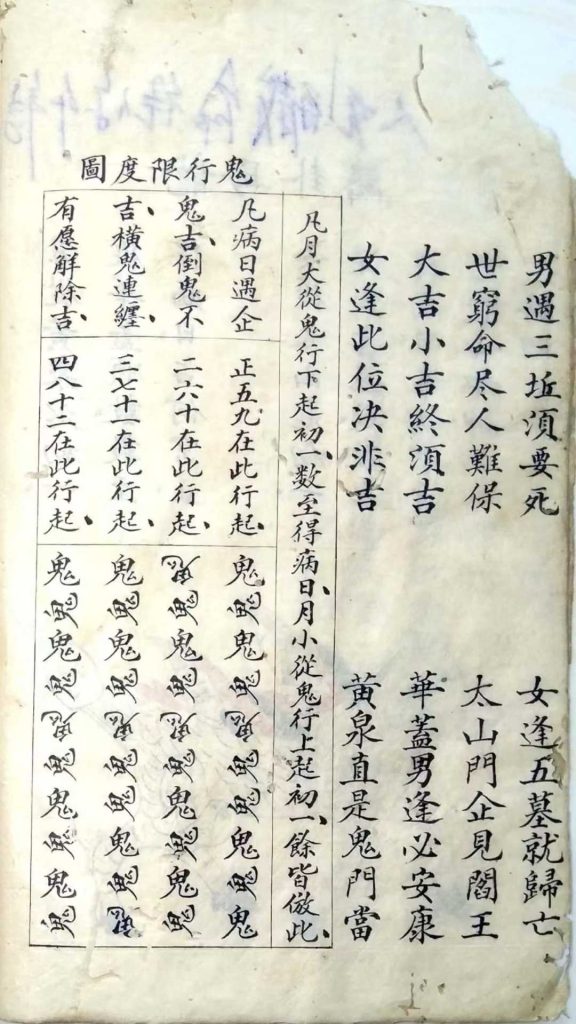 男遇三坵湏要死　女逢五墓就歸亡
世窮命尽人難保　太山門企見閻王
大吉小吉終湏吉　華蓋男逢必安康
女逢此位决非吉　黄泉直是鬼門當
鬼行限度圖
凡月大從鬼行下起初一、数至得病日、月小從鬼行上起初一、餘皆倣此、
凡病日遇企
鬼吉、倒鬼不
吉、橫鬼連纏、
有愿解除吉、
正五九在此行起、
二六十在此行起、
三七十一在此行起、
四八十二在此行起、
鬼鬼鬼鬼鬼鬼鬼鬼鬼鬼
鬼鬼鬼鬼鬼鬼鬼鬼鬼鬼
鬼鬼鬼鬼鬼鬼鬼鬼鬼鬼
鬼鬼鬼鬼鬼鬼鬼鬼鬼鬼